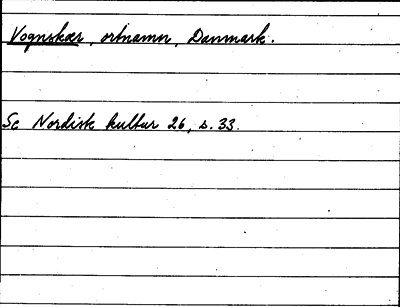 Vognskær, ortnamn, Danmark.
Se Nordisk kultur 26, s. 33.